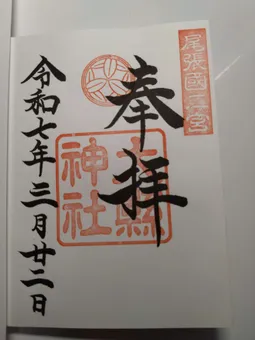 尾張國宮
奉拝
大縣
神社
令和七年三月廿二日